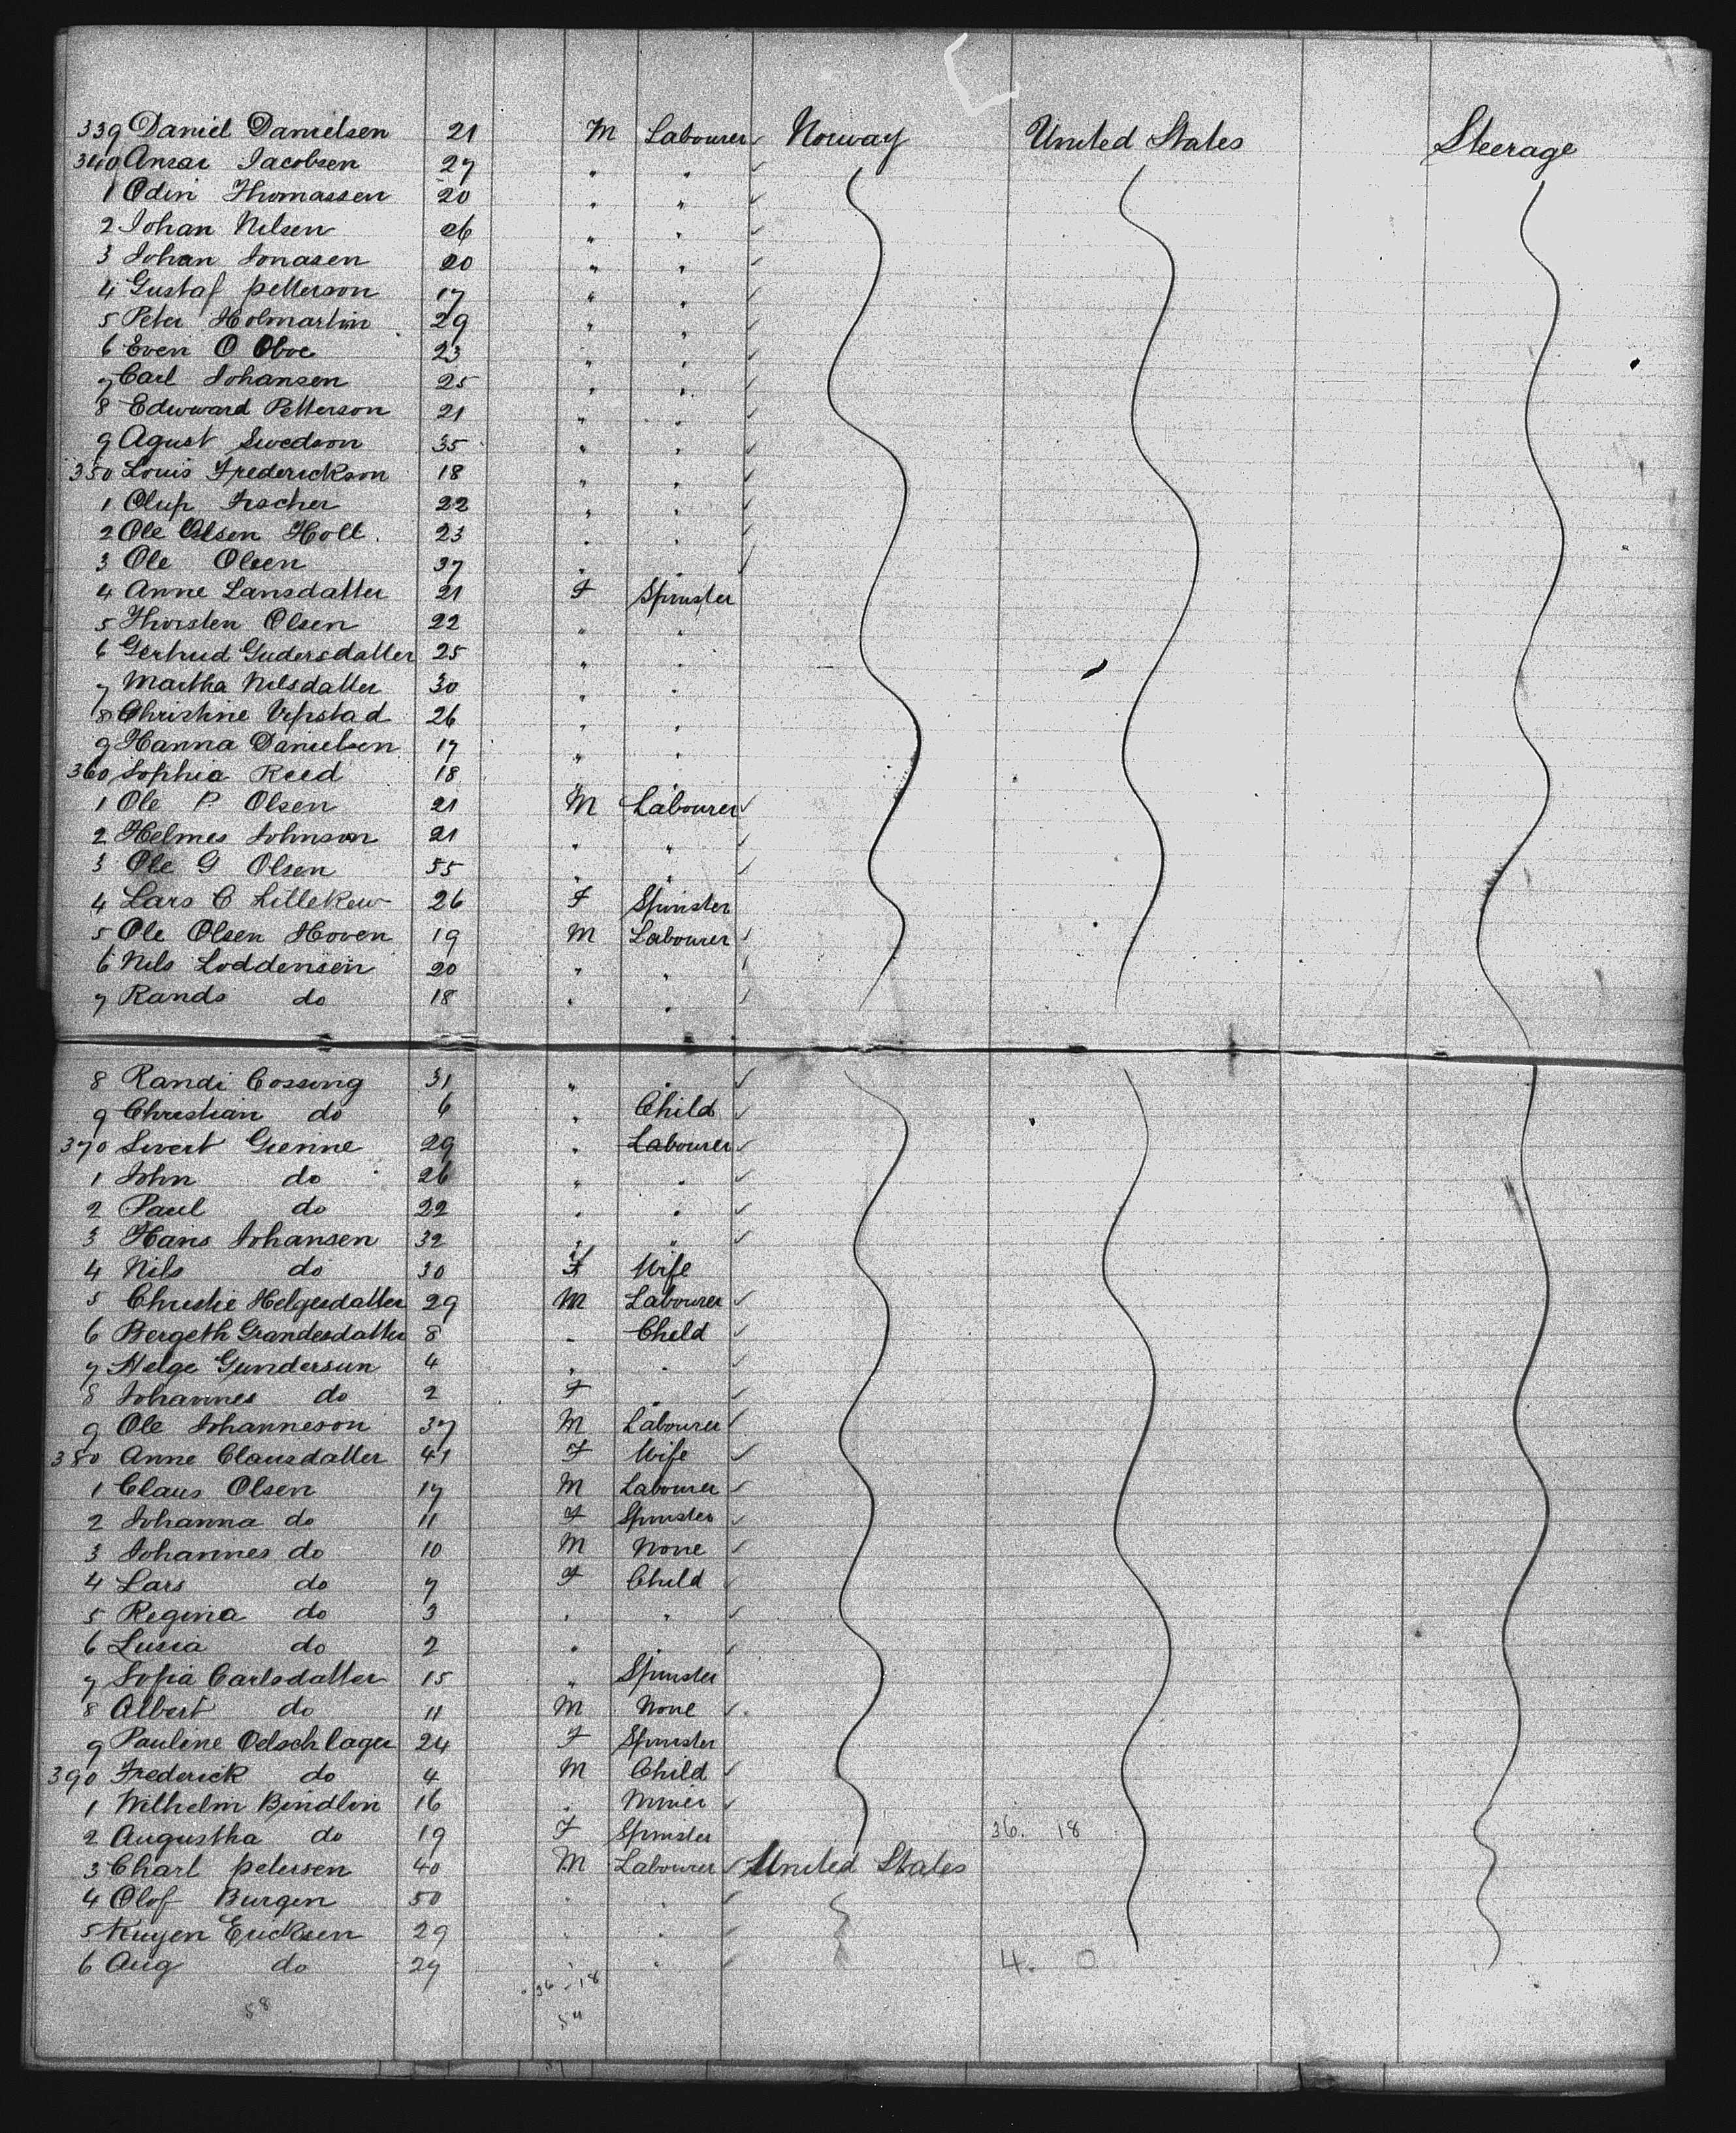 339 Daniel Danielsen 21 M Labourer ✓ Norway United States Steerage
340 Ansar Jacobsen 27 " " ✓
1 Odin Thomassen 20 " " ✓
2 Johan Nilsen 26 " " ✓
3 Johan Jonasen 20 " " ✓
4 Gustaf petterson 17 " " ✓
5 Peter Holmartin 29 " " ✓
6 Even O Oboe 23 " " ✓
7 Carl Johansen 25 " " ✓
8 Edwward Petterson 21 " " ✓
9 Agust Swedson 35 " " ✓
350 Louis Frederickson 18 " " ✓
1 Olup Fischer 22 " " ✓
2 Ole Olsen Holt 23 " " ✓
3 Ole Olsen 37 " " ✓
4 Anne Lansdatter 21 F Spinster
5 Thorsten Olsen 22 " "
6 Gertrud Gudersdatter 25 " "
7 Martha Nilsdatter 30 " "
8 Christine Vepstad 26 " "
9 Hanna Danielsen 17 " "
360 Sophia Reed 18 " "
1 Ole P Olsen 21 M Labourer ✓
2 Helmes Johnson 21 " " ✓
3 Ole G Olsen 55 " " ✓
4 Lars C Lillekew 26 F Spinster
5 Ole Olsen Hoven 19 M Labourer ✓
6 Nils Loddensen 20 " " ✓
7 Rands do 18 " " ✓
8 Randi Cossing 31 " " ✓
9 Christian do 6 " Child ✓
370 Sivert Grenne 29 " Labourer ✓
1 John do 26 " " ✓
2 Paul do 22 " " ✓
3 Hans Johansen 32 " " ✓
4 Nils do 30 F Wife
5 Christie Helgesdatter 29 M Labourer ✓
6 Bergeth Grandesdatter 8 " Child ✓
7 Helge Gundersun 4 " " ✓
8 Johannes do 2 F " ✓
9 Ole Johanneson 37 M Labourer ✓
380 Anne Clausdatter 41 F Wife ✓
1 Claus Olsen 17 M Labourer ✓
2 Johanna do 11 F Spinster ✓
3 Johannes do 10 M None ✓
4 Lars do 7 F Child ✓
5 Regina do 3 " " ✓
6 Lusia do 2 " " ✓
7 Sofia Carlsdatter 15 " Spinster
8 Albert do 11 M None ✓
9 Pauline Oelschlager 24 F Spinster
390 Frederick do 4 M Child ✓
1 Wilhelm Bindlin 16 " Miner ✓
2 Augustha do 19 F Spinster 36. 18
3 Charl petersen 40 M Labourer ✓ United States
4 Olof Burgen 50 " " ✓
5 Kuyen Ericksen 29 " " ✓
6 Aug do 29 " " ✓ 4. 0
36 - 18
58 54